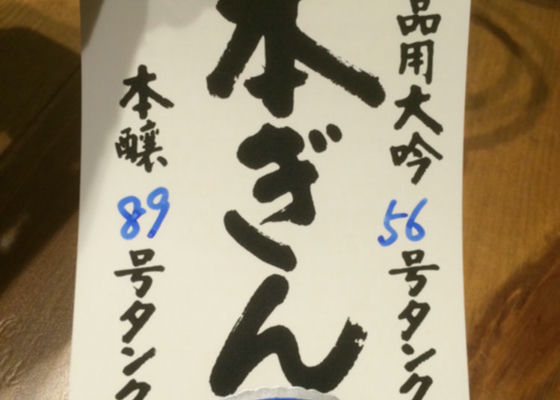 品用大吟56号タンク
本ぎん
本醸89号タンク